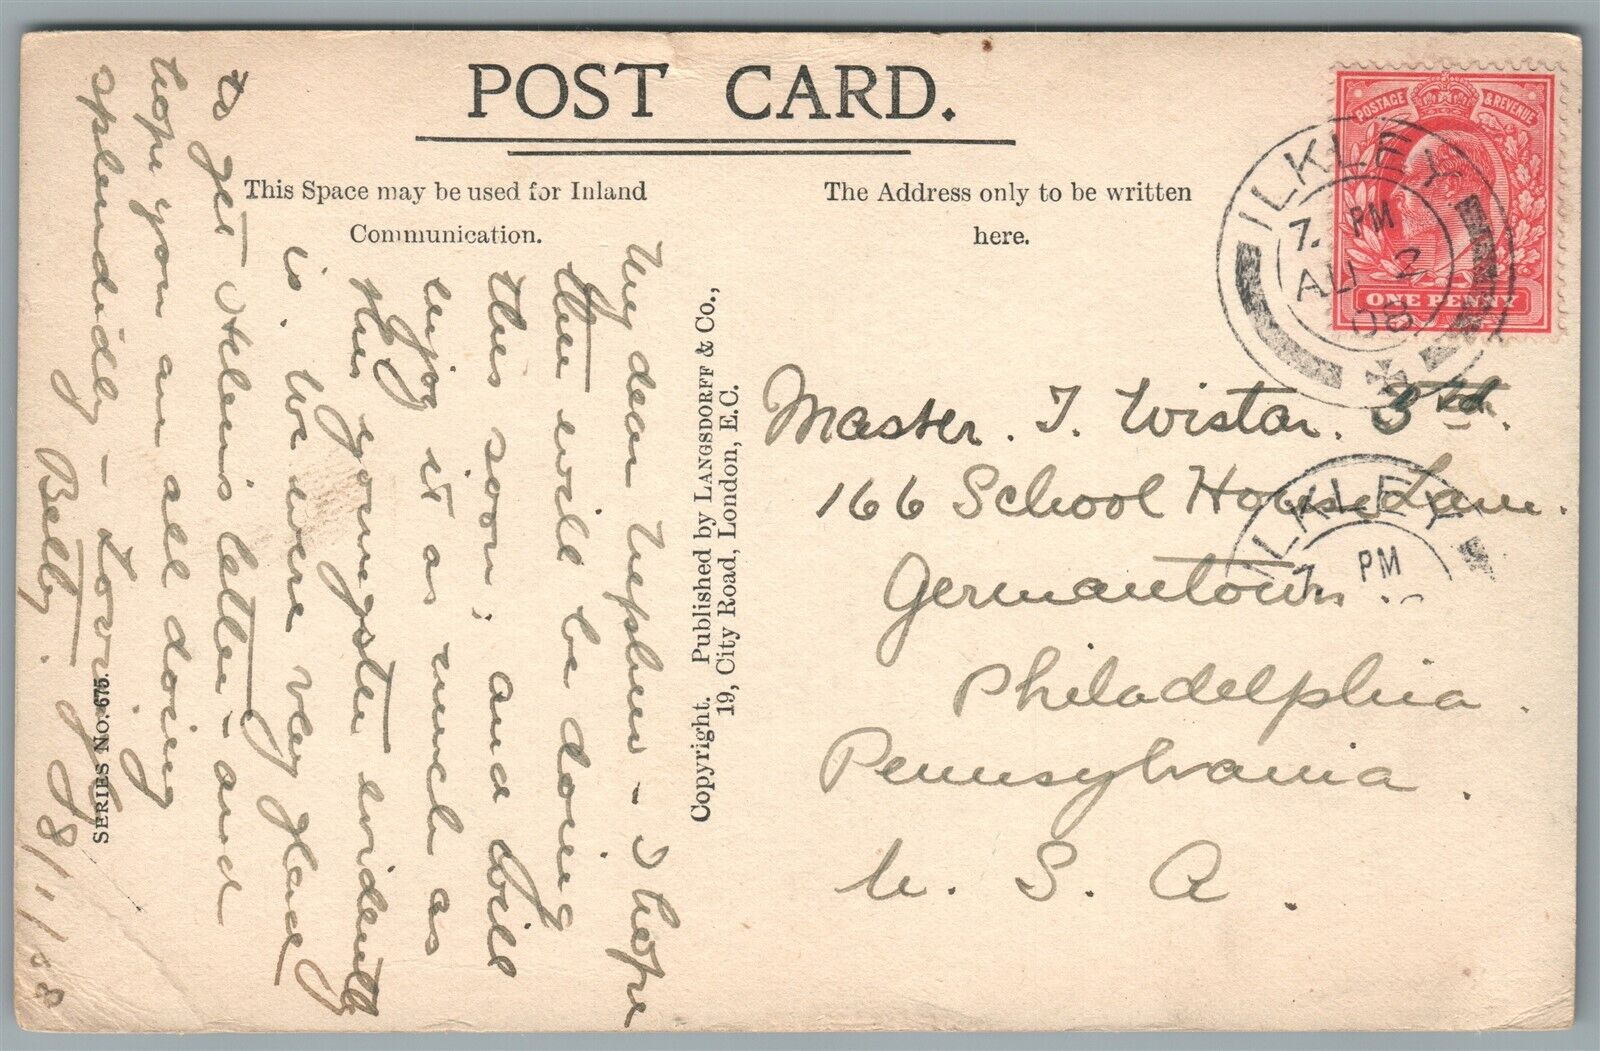 POST CARD.
This Space may be used for Inland
Communication.
The Address only to be written
here.
POSTAGE & REVENUE
ONE PENNY
ILKLEY
7. PM
AU 2
08
Master. T. Wistar. 3rd.
166 School House Lane.
Germantown.
Philadelphia.
Pennsylvania.
U. S. A.
ILKLEY
7. PM
Copyright. Published by LANGSDORFF & Co.,
19, City Road, London, E.C.
SERIES No. 675.
My dear nephew - I hope
thee will be doing
this soon, and will
enjoy it as much as
the youngster evidently
is. We were very glad
to get Helen's letter - and
hope you are all doing
splendidly - Loving
Betty.